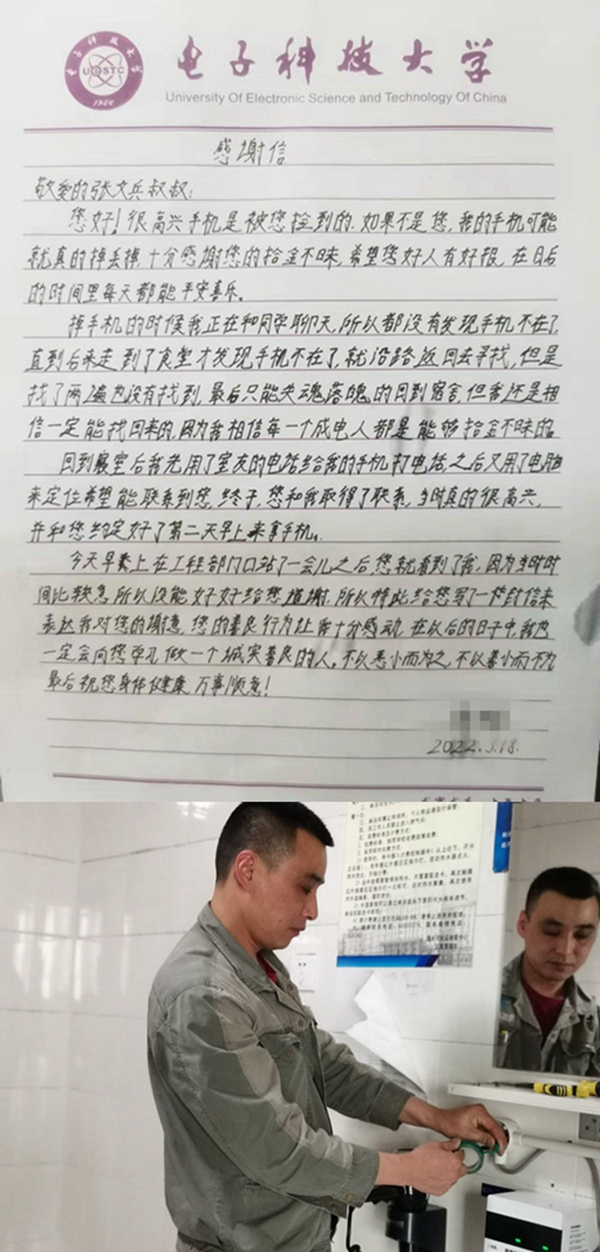 电子科技大学
UESTC
1956
电子科技大学
University Of Electronic Science and Technology Of China
感谢信
敬爱的张文兵叔叔:
您好!很高兴手机是被您捡到的.如果不是您,我的手机可能
就真的掉丢掉,十分感谢您的拾金不昧,希望您好人有好报,在日后
的时间里每天都能平安喜乐。
掉手机的时候我正在和同学聊天,所以都没有发现手机不在了,
直到后来走到了食堂才发现手机不在了,就沿路返回去寻找,但是
找了两遍也没有找到,最后只能失魂落魄的回到宿舍,但我还是相
信一定能找回来的,因为我相信每一个成电人都是能够拾金不昧的。
回到寝室后我先用了室友的电话给我的手机打电话,之后又用了电脑
来定位希望能联系到您,终于,您和我取得了联系,当时真的很高兴,
并和您约定好了第二天早上来拿手机。
今天早上在工程部门口站了一会儿之后您就看到了我,因为当时时
间比较急所以没能好好给您道谢.所以特此给您写了一封信来
表达我对您的谢意,您的善良行为让我十分感动,在以后的日子中,我也
一定会向您学习,做一个诚实善良的人,不以恶小而为之,不以善小而不为
最后祝您身体健康,万事顺意!
2022.3.18.